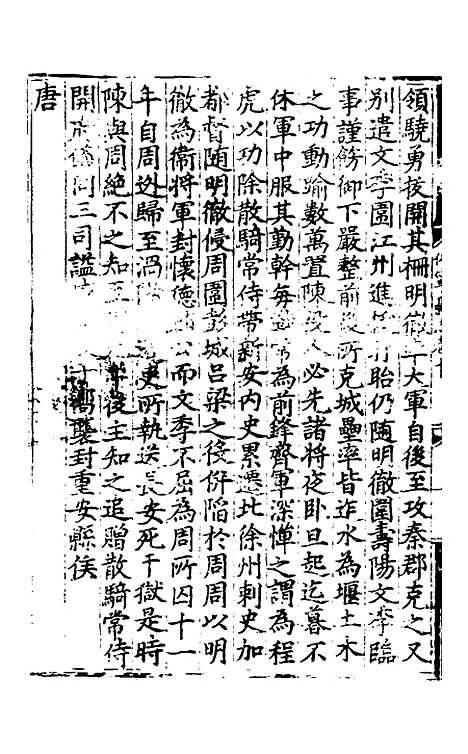 領驍勇夜開其柵明徹率大軍自後至攻秦郡克之又
別遣文季圍江州進盱眙仍隨明徹圍壽陽文季臨
事謹飭御下嚴整前後所克城壘率皆迮水為堰土木
之功動踰數萬置陳役人必先諸將夜卧旦起迄暮不
休軍中服其勤幹每為前鋒齊軍深憚之謂為程
虎以功除散騎常侍帶新安内史累遷北徐州刺史加
都督隨明徹侵周圍彭城吕梁之役併陷於周周以明
徹為衛將軍封懷德公而文季不屈為周所囚十一
年自周迯歸至渦陽吏所執送長安死于獄是時
陳與周絶不之知至後主知之追贈散騎常侍
開府儀同三司謚子嚮襲封重安縣侯
唐